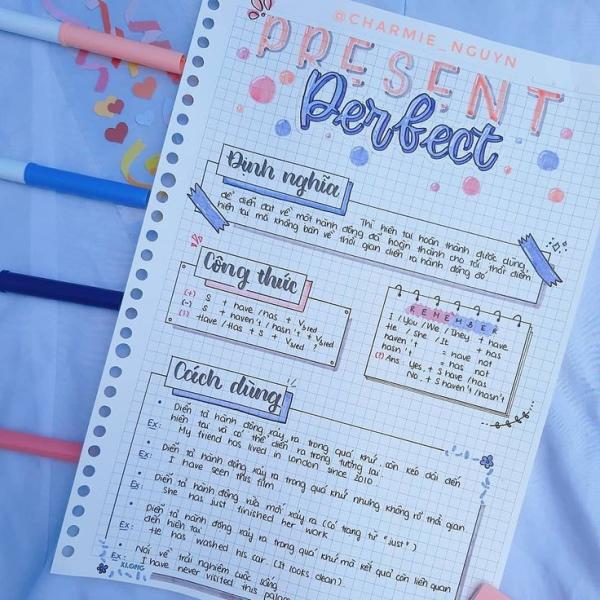 @CHARMIE_NGUYN
PRESENT
Perfect
Định nghĩa
Thì hiện tại hoàn thành được dùng
để diễn đạt về một hành động đã hoàn thành cho tới thời điểm
hiện tại mà không bàn về thời gian diễn ra hành động đó
Công thức
(+) S + have/has + V3/ed
(-) S + haven't/hasn't + V3/ed
(?) Have/Has + S + V3/ed ?
REMEMBER
I/You/We/They + have
He/She/It + has
haven't = have not
hasn't = has not
(?) Ans: Yes, + S have/has
No, + S haven't/hasn't
Cách dùng
• Diễn tả hành động xảy ra trong quá khứ còn kéo dài đến
hiện tại và có thể diễn ra trong tương lai.
Ex: My friend has lived in London since 2010
• Diễn tả hành động xảy ra trong quá khứ nhưng không rõ thời gian
Ex: I have seen this film
• Diễn tả hành động vừa mới xảy ra (có trạng từ "just")
Ex: She has just finished her work
• Diễn tả hành động xảy ra trong quá khứ mà kết quả còn liên quan
đến hiện tại
Ex: He has washed his car (It looks clean)
• Nói về trải nghiệm cuộc sống
Ex: I have never visited this
KLONG